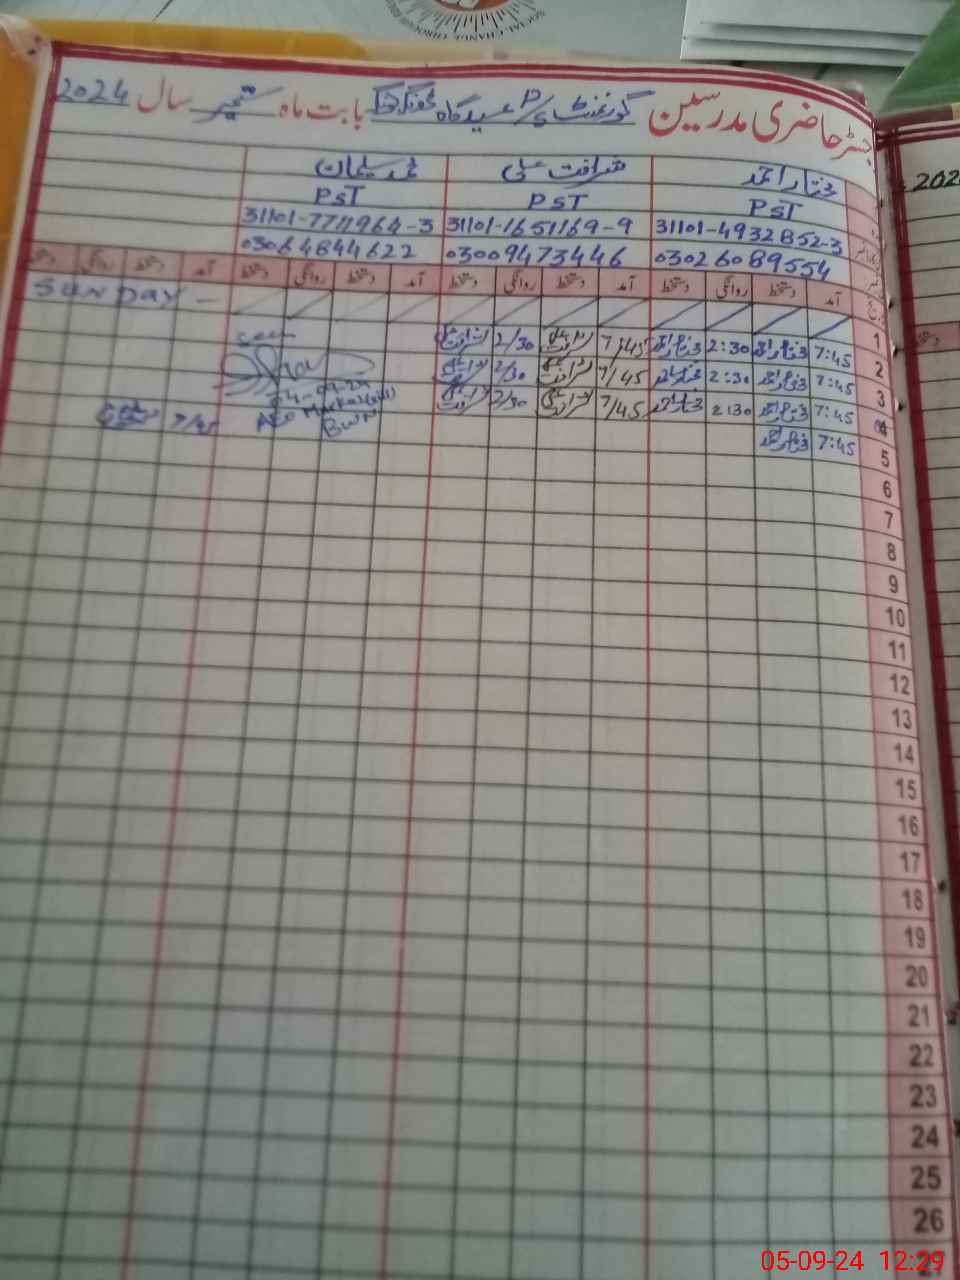 SOCIAL CHANGE THROUGH
رجسٹر حاضری مدرسین گورنمنٹ P/S عیدگاہ بابت ماہ ستمبر سال 2024
مختار احمد شرافت علی محمد سلیمان
PST PST PST
31101-4932852-3 31101-1651169-9 31101-7711964-3
03026089554 03009473446 03064844622
آمد دستخط روانگی دستخط آمد دستخط روانگی دستخط آمد دستخط روانگی دستخط آمد دستخط روانگی دستخط
1 SUNDAY -
2 7:45 مختار احمد 2:30 مختار احمد 7:45 شرافت علی 2/30 شرافت علی
3 7:45 مختار احمد 2:30 مختار احمد 7/45 شرافت علی 2/30 شرافت علی
4 7:45 مختار احمد 2:30 مختار احمد 7/45 شرافت علی 2/30 شرافت علی
5 7:45 مختار احمد 7/45
seen
04-09-24
AEO Markaz
BWN
6
7
8
9
10
11
12
13
14
15
16
17
18
19
20
21
22
23
24
25
26
27
202
05-09-24 12:29